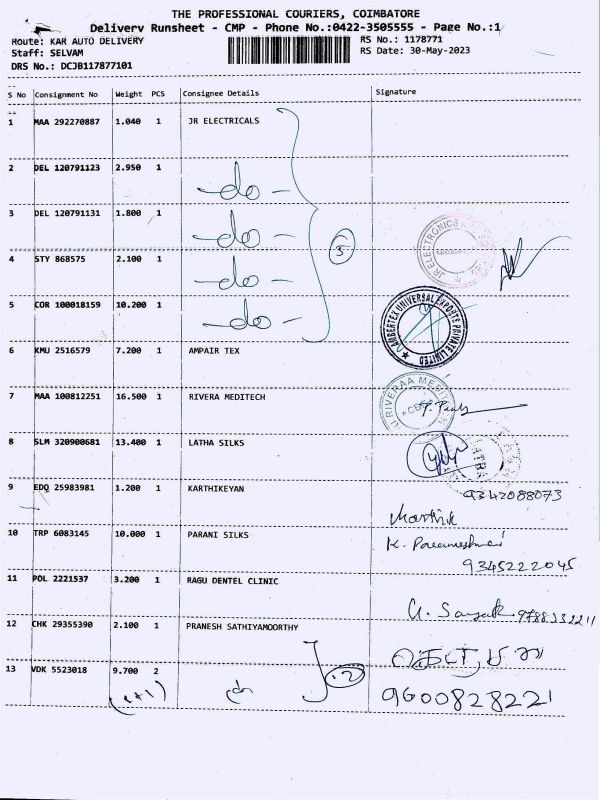 THE PROFESSIONAL COURIERS, COIMBATORE
Delivery Runsheet - CMP - Phone No.:0422-3505555 - Page No.:1
Route: KAR AUTO DELIVERY RS No.: 1178771
Staff: SELVAM RS Date: 30-May-2023
DRS No.: DCJB117877101
S No Consignment No Weight PCS Consignee Details Signature
1 MAA 292270887 1.040 1 JR ELECTRICALS
2 DEL 120791123 2.950 1 -do-
3 DEL 120791131 1.800 1 -do-
4 STY 868575 2.100 1 -do-
5 COR 100018159 10.200 1 -do-
5
JR ELECTRONICS
AMBERTEX UNIVERSAL EXPORTS PRIVATE LIMITED
6 KMU 2516579 7.200 1 AMPAIR TEX
7 MAA 100812251 16.500 1 RIVERA MEDITECH
RIVERAA
8 SLM 320900681 13.400 1 LATHA SILKS
9 EDQ 25983981 1.200 1 KARTHIKEYAN
9342088073
10 TRP 6083145 10.000 1 PARANI SILKS
K. Parameshwari
9345222045
11 POL 2221537 3.200 1 RAGU DENTEL CLINIC
9788332211
12 CHK 29355390 2.100 1 PRANESH SATHIYAMOORTHY
13 VDK 5523018 9.700 2
(1+1) 2 9600828221